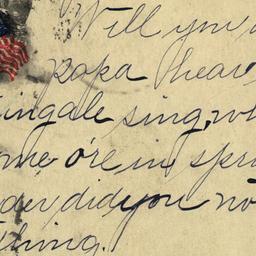 Will you
papa hear
ingale sing, wh
me o're in spri
der, did you no
thing.